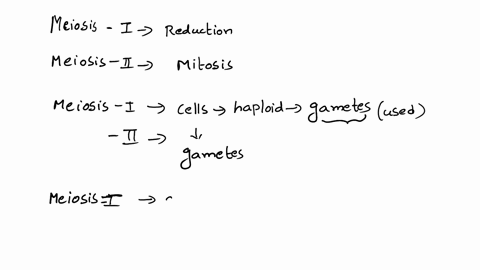 Meiosis - I → Reduction
Meiosis - II → Mitosis
Meiosis - I → cells → haploid → gametes (used)
- II → ↓
gametes
Meiosis - I →